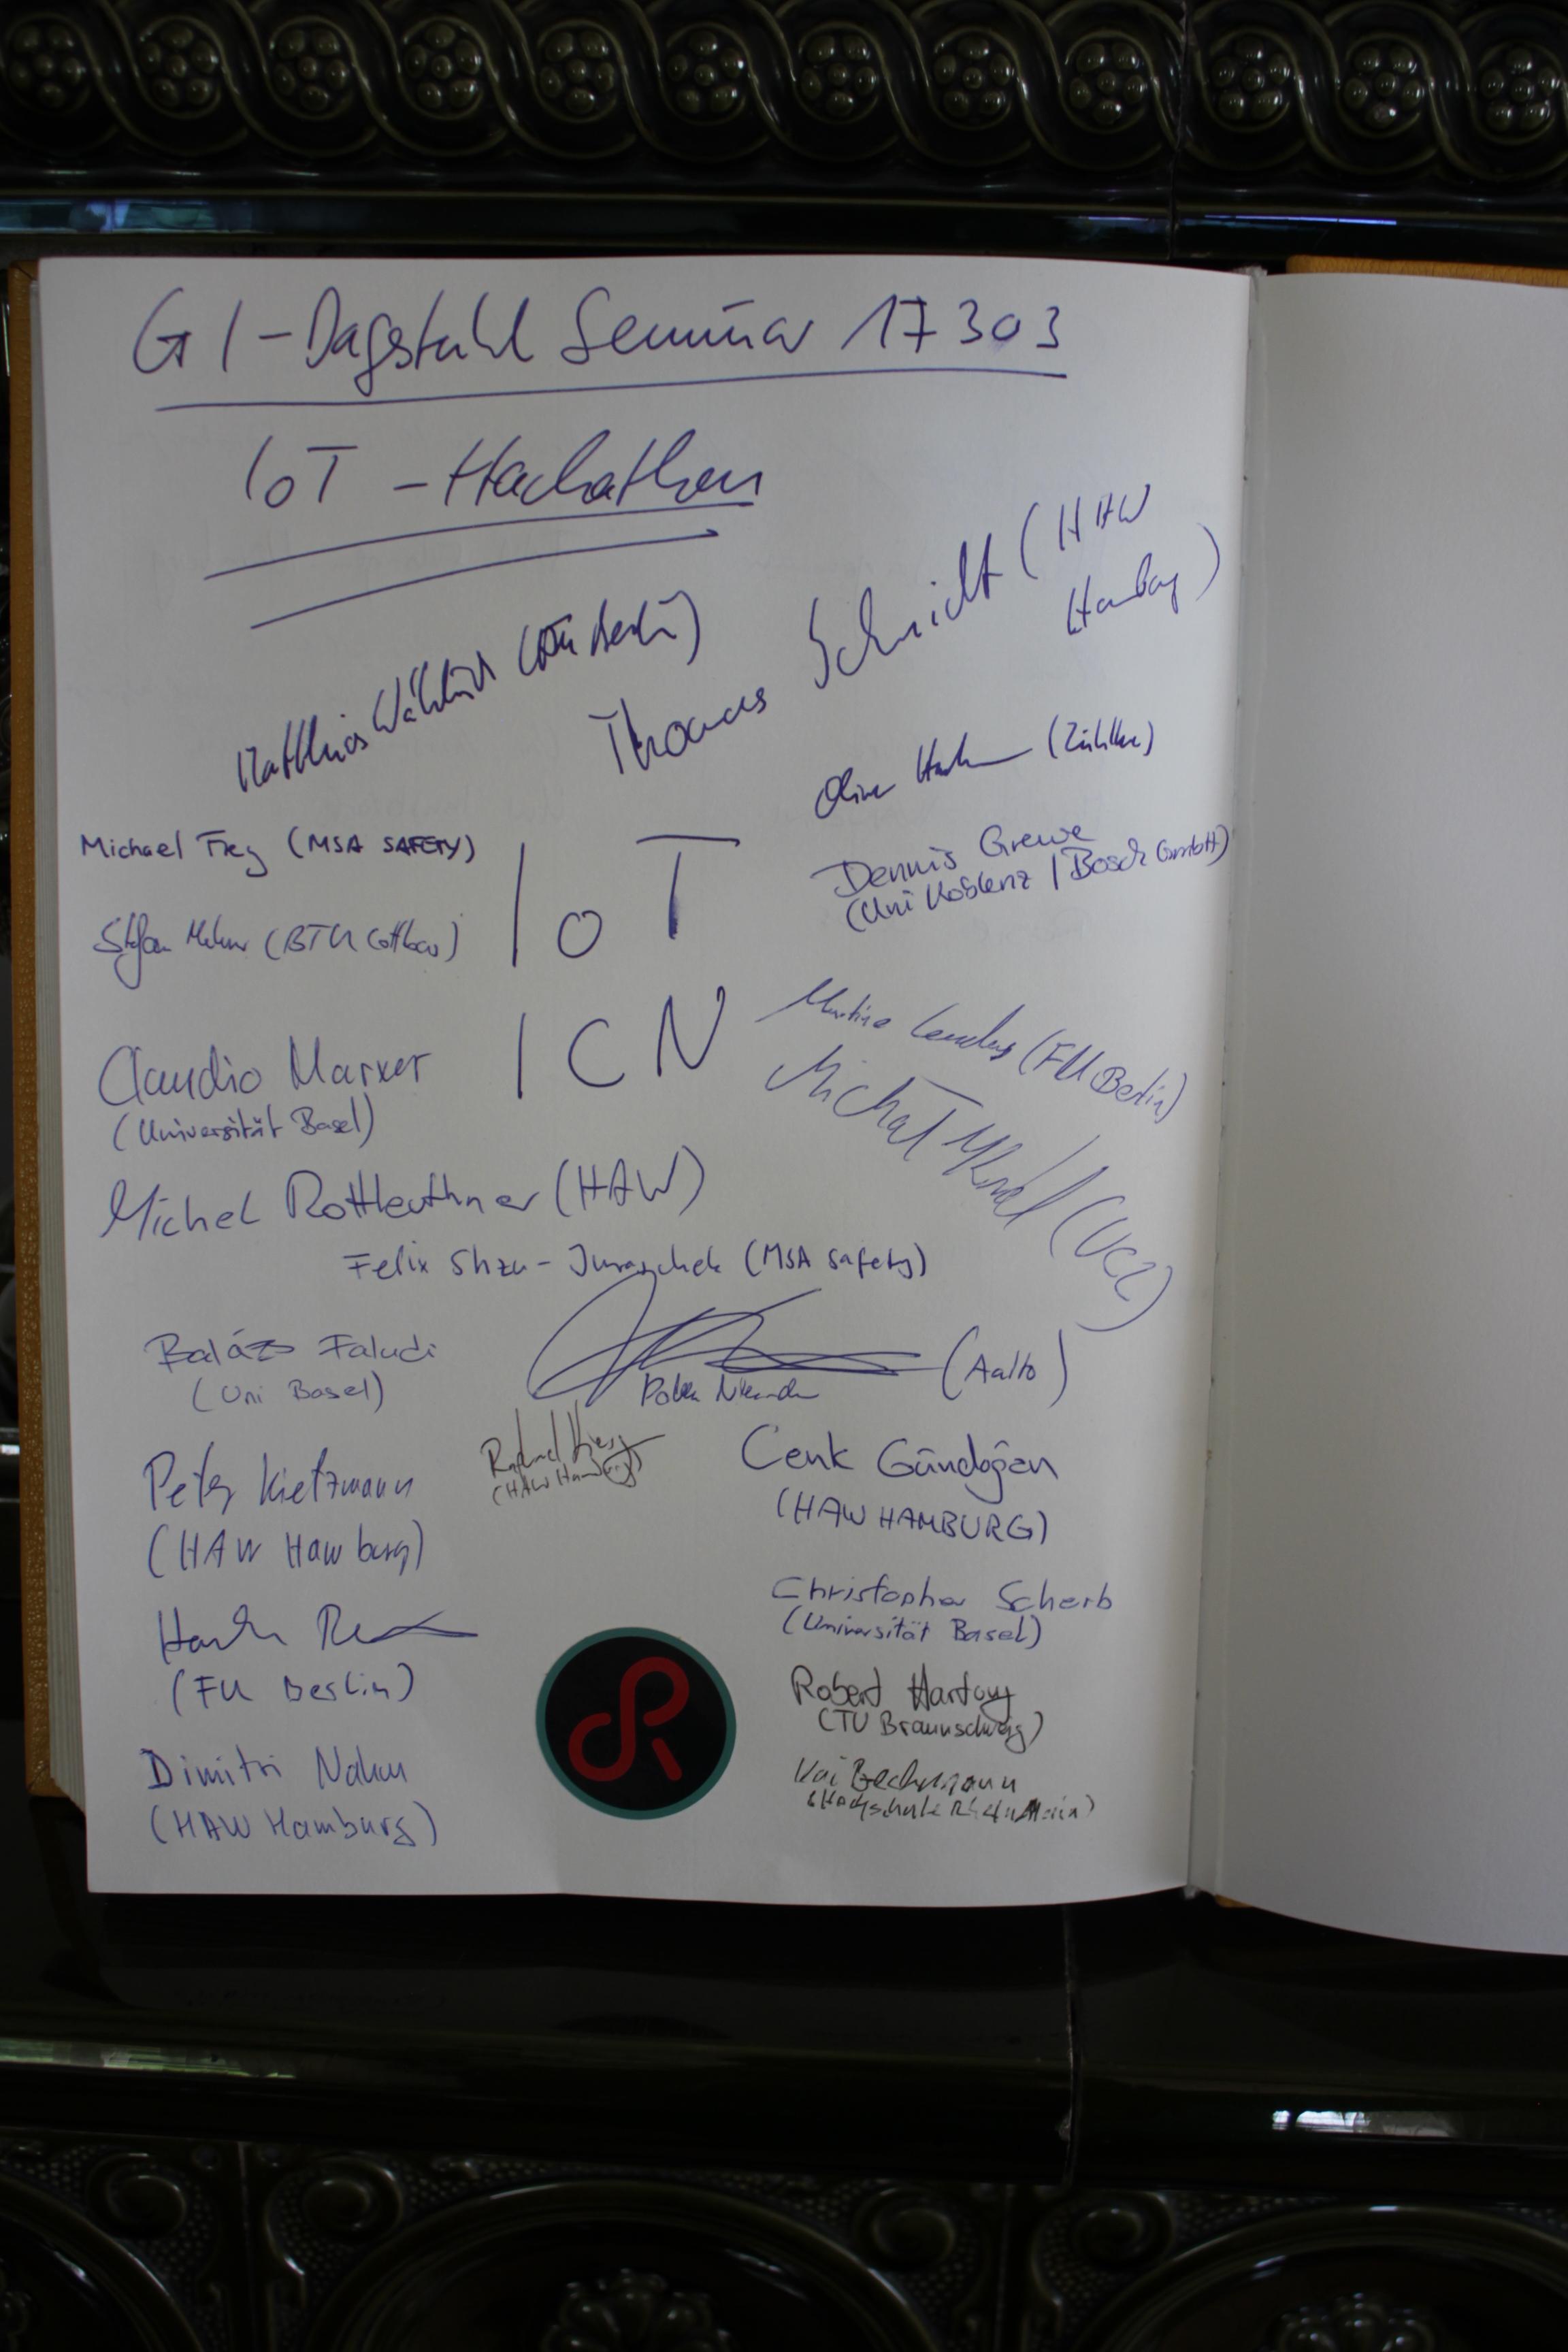 GI-Dagstuhl Seminar 17303
IoT-Hackathon
Matthias Wählisch (FU Berlin)
Thomas Schmidt (HAW
Hamburg)
Oliver (Zühlke)
Michael Frey (MSA SAFETY)
Dennis Grewe
(Uni Koblenz / Bosch GmbH)
IoT
Stefan (BTU Cottbus)
ICN
Martine Lenders (FU Berlin)
Claudio Marxer
(Universität Basel)
Michał Król (UCL)
Michel Rottleuthner (HAW)
Felix Shzu-Juraschek (MSA Safety)
Balázs Faludi
(Uni Basel)
(Aalto)
Peter Kietzmann
(HAW Hamburg)
Raphael
(HAW Hamburg)
Cenk Gündoğan
(HAW HAMBURG)
Christopher Scherb
(Universität Basel)
(FU Berlin)
Robert Hartung
(TU Braunschweig)
Dimitri Nahm
(HAW Hamburg)
Kai Beckmann
(Hochschule RheinMain)